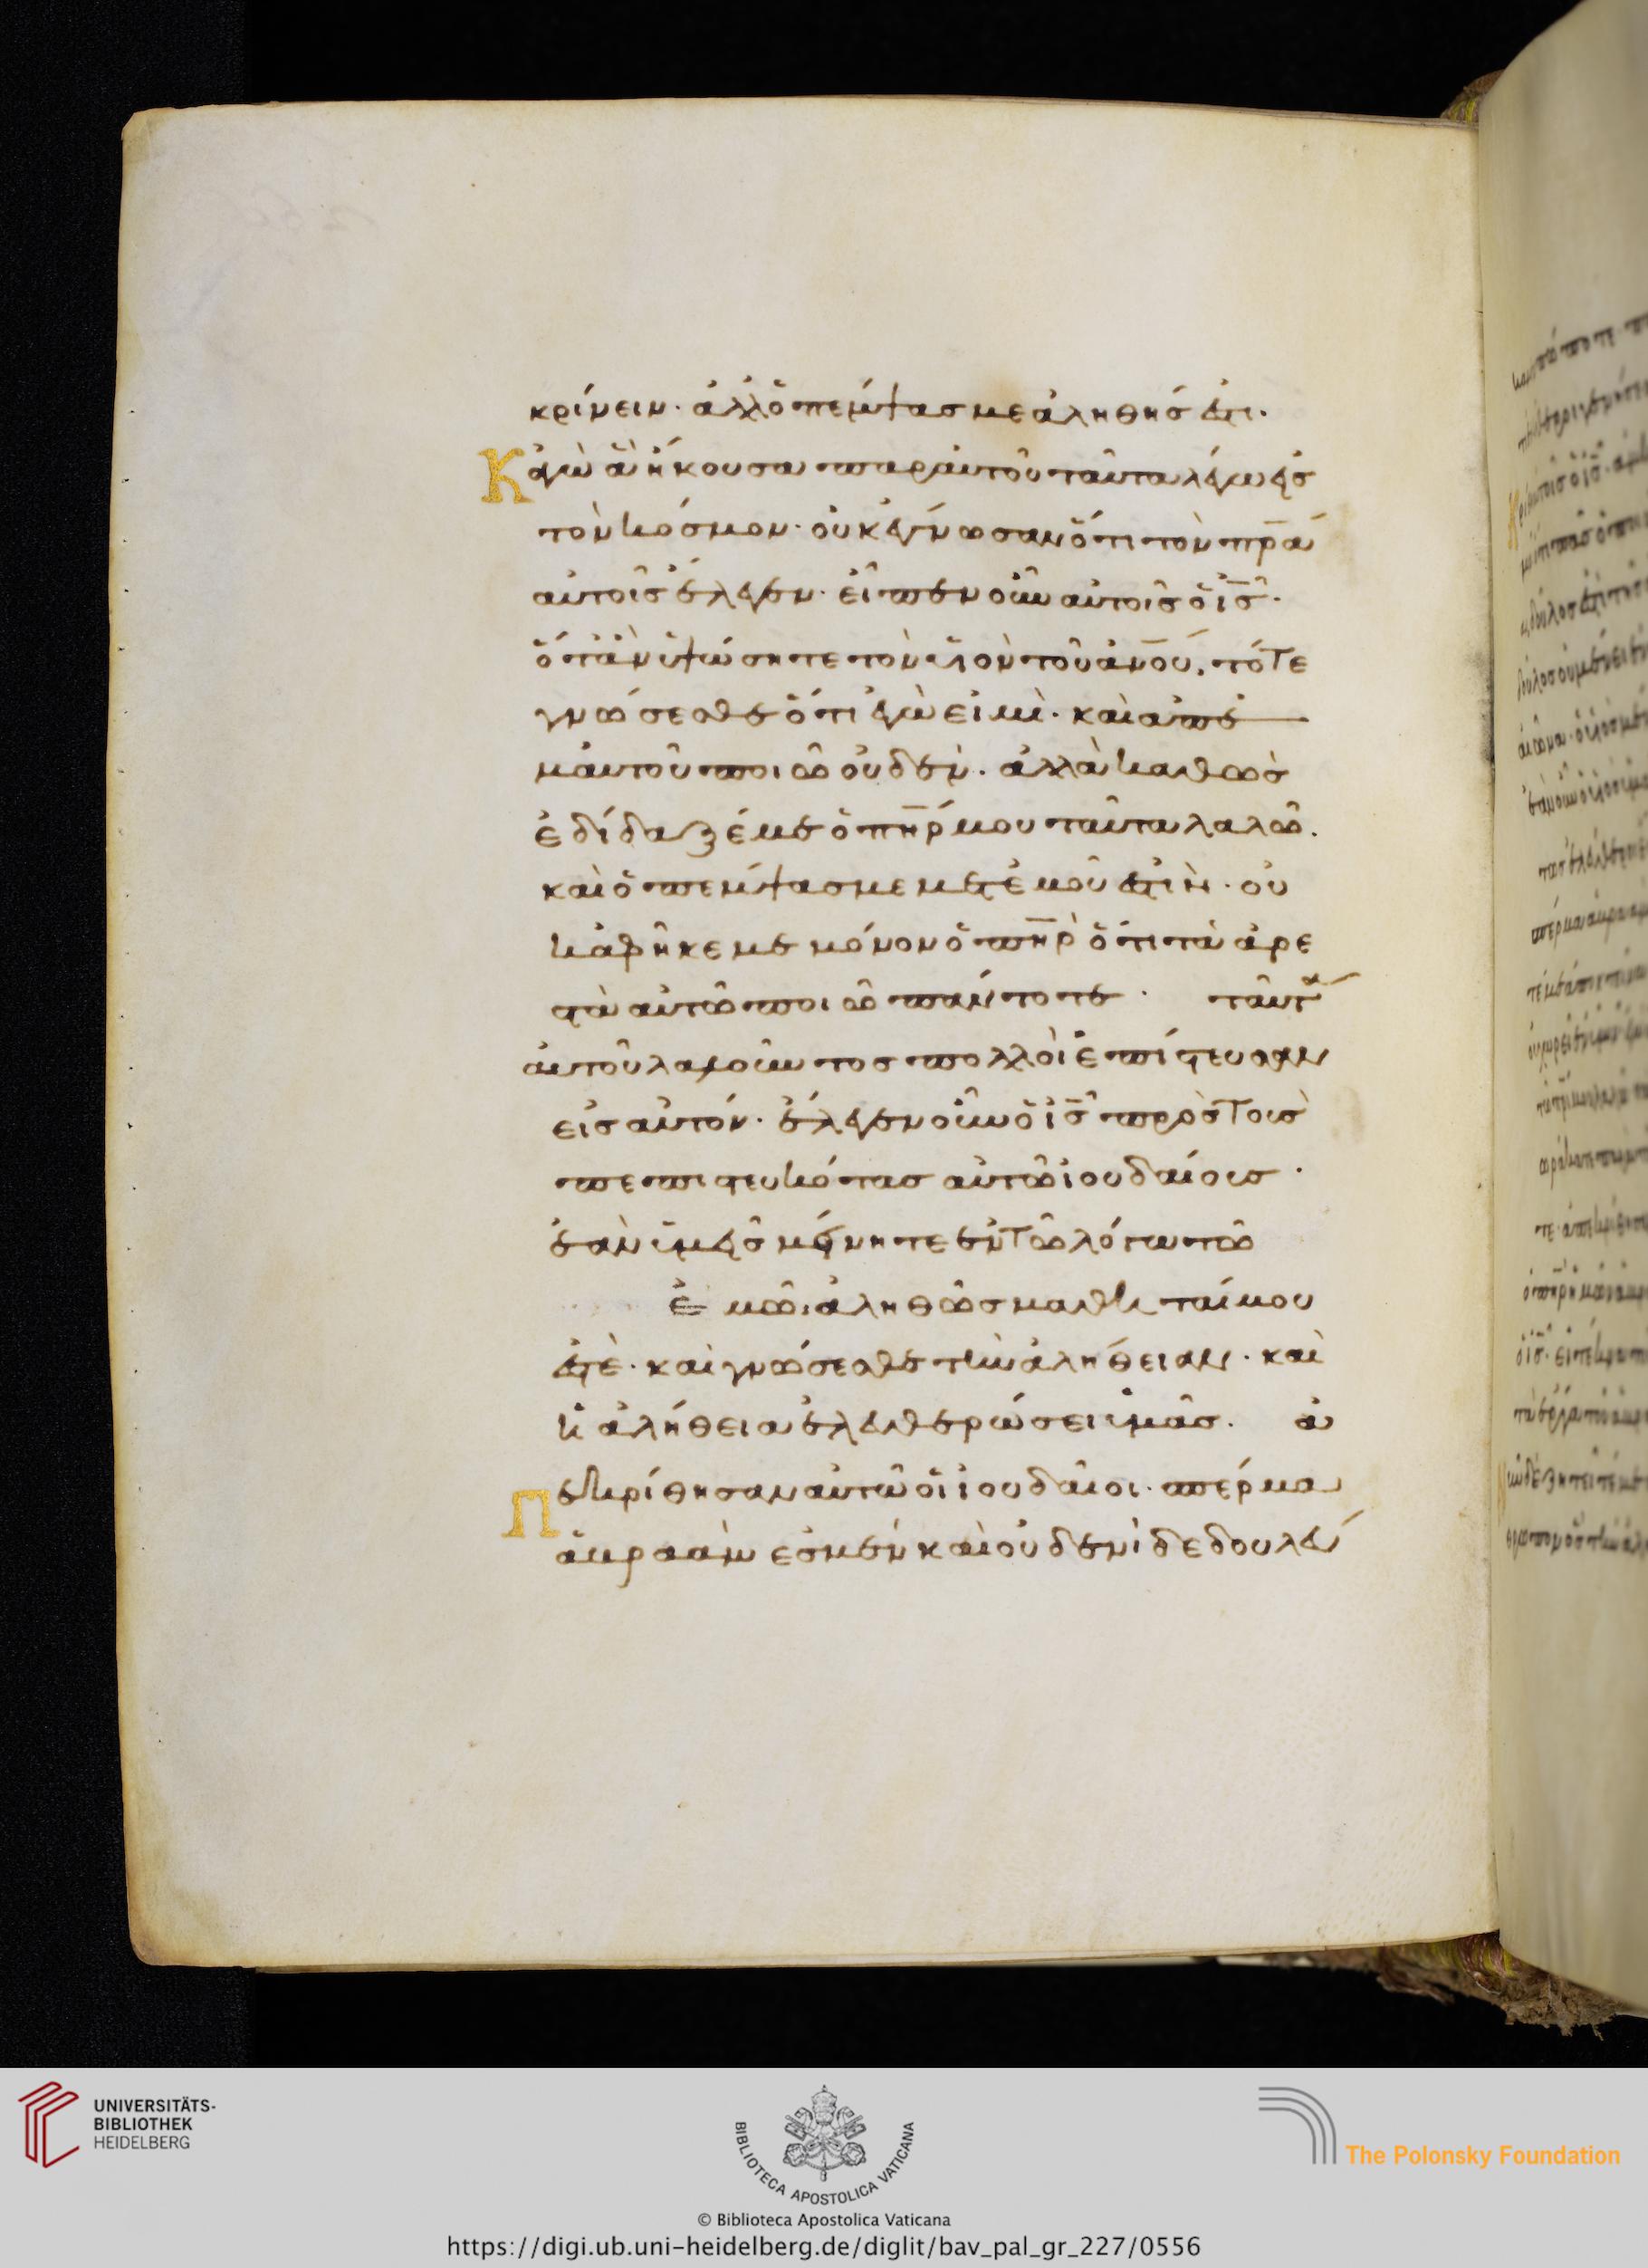 κρίνειν· ἀλλ̓ ὁ πέμψασ με ἀληθήσ ἐστι·
Κἀγὼ ἃ ἤκουσα παρ αὐτοῦ ταῦτα λέγω εἰσ
τὸν κόσμον· οὐκ ἔγνωσαν ὅτι τὸν πρ̅α
αὐτοῖσ ἔλεγεν· εἶπεν οὖν αὐτοῖσ ὁ ι̅σ̅·
ὅταν ὑψώσητε τὸν υἱὸν τοῦ αν̅ου, τότε
γνώσεσθε ὅτι ἐγὼ εἰμι· καὶ ἀπ ἐ
μαυτοῦ ποιῶ οὐδέν· ἀλλὰ καθὼσ
ἐδίδαξέ με ὁ πη̅ρ μου ταῦτα λαλῶ.
καὶ ὁ πέμψασ με μετ ἐμοῦ ἐστιν· οὐ
κ ἀφῆκε με μόνον ὁ πη̅ρ ὅτι τὰ ἀρε
στὰ αὐτῶ ποιῶ πάντοτε· ταῦτα
αὐτοῦ λαλοῦντοσ πολλοὶ ἐπίστευσαν
εἰσ αὐτόν· ἔλεγεν οὖν ὁ ι̅σ̅ πρὸσ τοὺσ
πεπιστευκότασ αὐτῶ ἰουδαίουσ·
ἐὰν ὑμεῖσ μείνητε ἐν τῶ λόγω τῶ
ἐμῶ, ἀληθῶσ μαθηταί μου
ἐστὲ· καὶ γνώσεσθε τὴν ἀλήθειαν· καὶ
ἡ ἀλήθεια ἐλευθερώσει ὑμᾶσ. ἀ
πεκρίθησαν αὐτῶ οἱ ἰουδαῖοι· σπέρμα
ἀβραάμ ἐσμεν καὶ οὐδενὶ δεδουλεύ
UNIVERSITÄTS-
BIBLIOTHEK
HEIDELBERG
BIBLIOTECA APOSTOLICA VATICANA
The Polonsky Foundation
© Biblioteca Apostolica Vaticana
https://digi.ub.uni-heidelberg.de/diglit/bav_pal_gr_227/0556